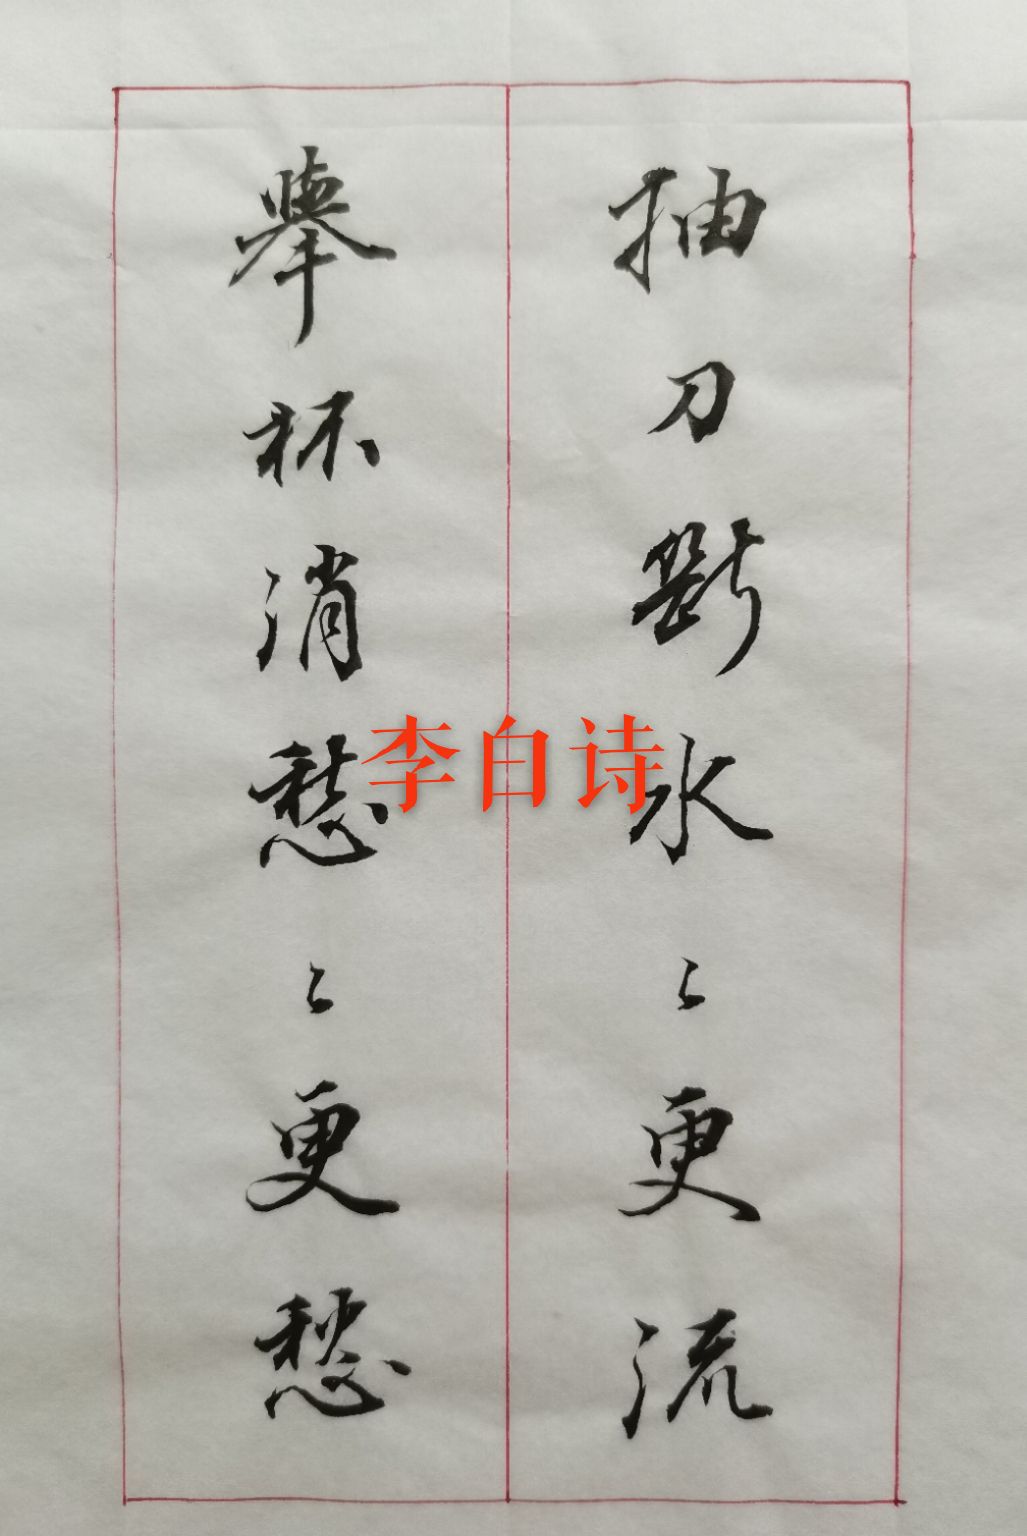 抽刀斷水〻更流
舉杯消愁〻更愁
李白诗